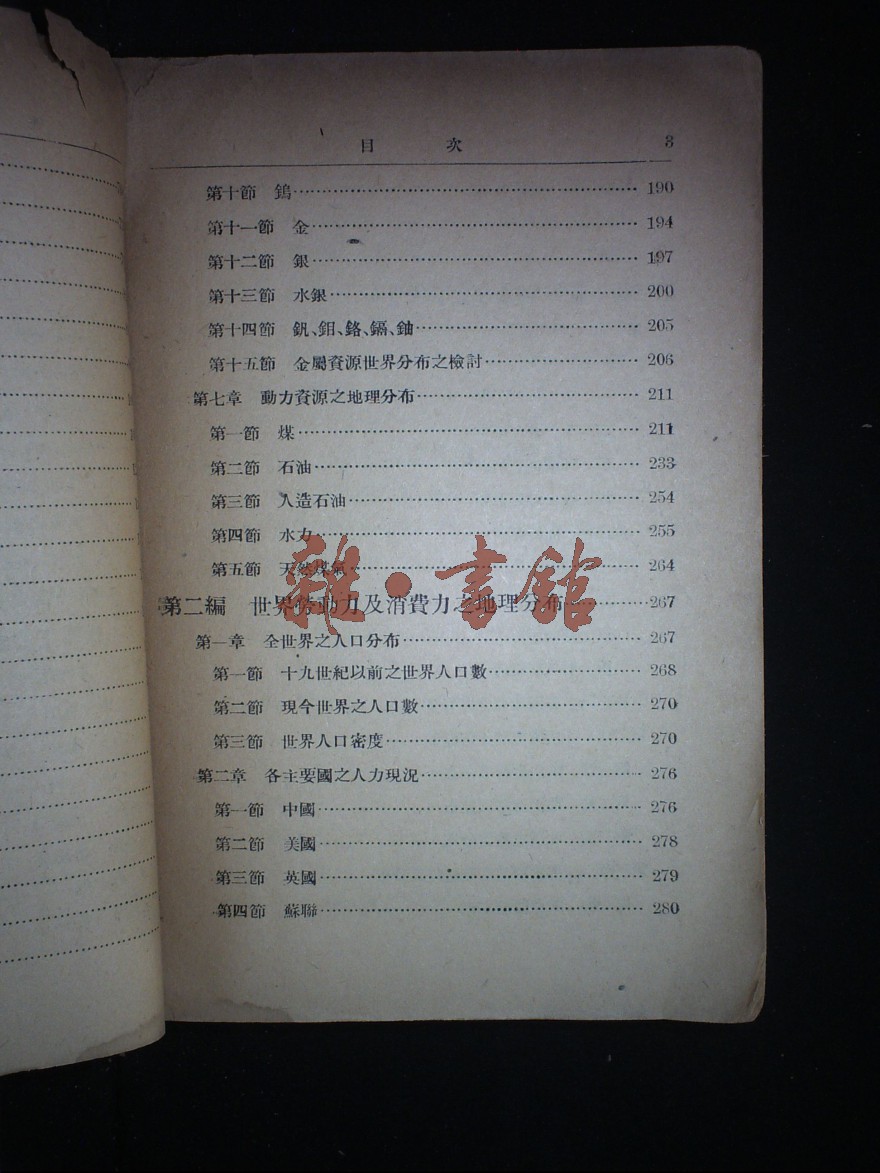 目 次 3
第十節 鎢 190
第十一節 金 194
第十二節 銀 197
第十三節 水銀 200
第十四節 釩、鉬、鉻、鎘、鈾 205
第十五節 金屬資源世界分布之檢討 206
第七章 動力資源之地理分布 211
第一節 煤 211
第二節 石油 233
第三節 人造石油 254
第四節 水力 255
第五節 天然煤氣 264
第二編 世界勞動力及消費力之地理分布 267
第一章 全世界之人口分布 267
第一節 十九世紀以前之世界人口數 268
第二節 現今世界之人口數 270
第三節 世界人口密度 270
第二章 各主要國之人力現況 276
第一節 中國 276
第二節 美國 278
第三節 英國 279
第四節 蘇聯 280
雜·書館